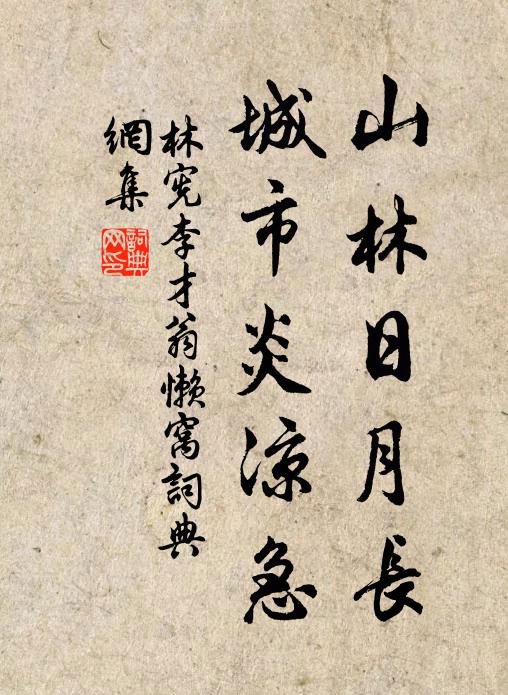 山林日月長
城市炎涼急
林宪李才翁懒窩詞典
網集
詞典網印